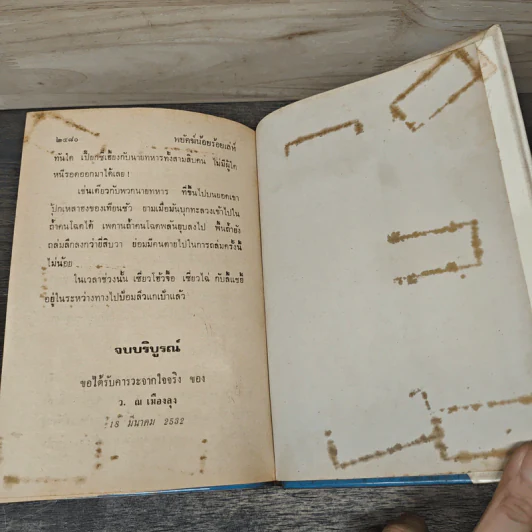 ๒๔๘๐ พยัคฆ์น้อยร้อยเล่ห์
ทันใด เปียกซีเฮียงกับนายทหารทั้งสามสิบคน ไม่มีผู้ใด
หนีรอดออกมาได้เลย !
เช่นเดียวกับพวกนายทหาร ที่ขึ้นไปบนยอดเขา
ปุกเหลาฮงของเทียนซัว ยามเมื่อมันบุกทะลวงเข้าไปใน
ถ้ำคนโฉดได้ เพดานถ้ำคนโฉดพลันยุบลงไป พื้นถ้ำยัง
ถล่มลึกลงกว่ายี่สิบวา ย่อมมีคนตายไปในการถล่มครั้งนี้
ไม่น้อย
ในเวลาช่วงนั้น เซียวโฮ้วชื้อ เซียวไฉ่ กับลี้แชยี้
อยู่ในระหว่างทางไปป้อมลิ่วแกเป้าแล้ว
จบบริบูรณ์
ขอได้รับคารวะจากใจจริง ของ
ว. ณ เมืองลุง
15 มีนาคม 2532